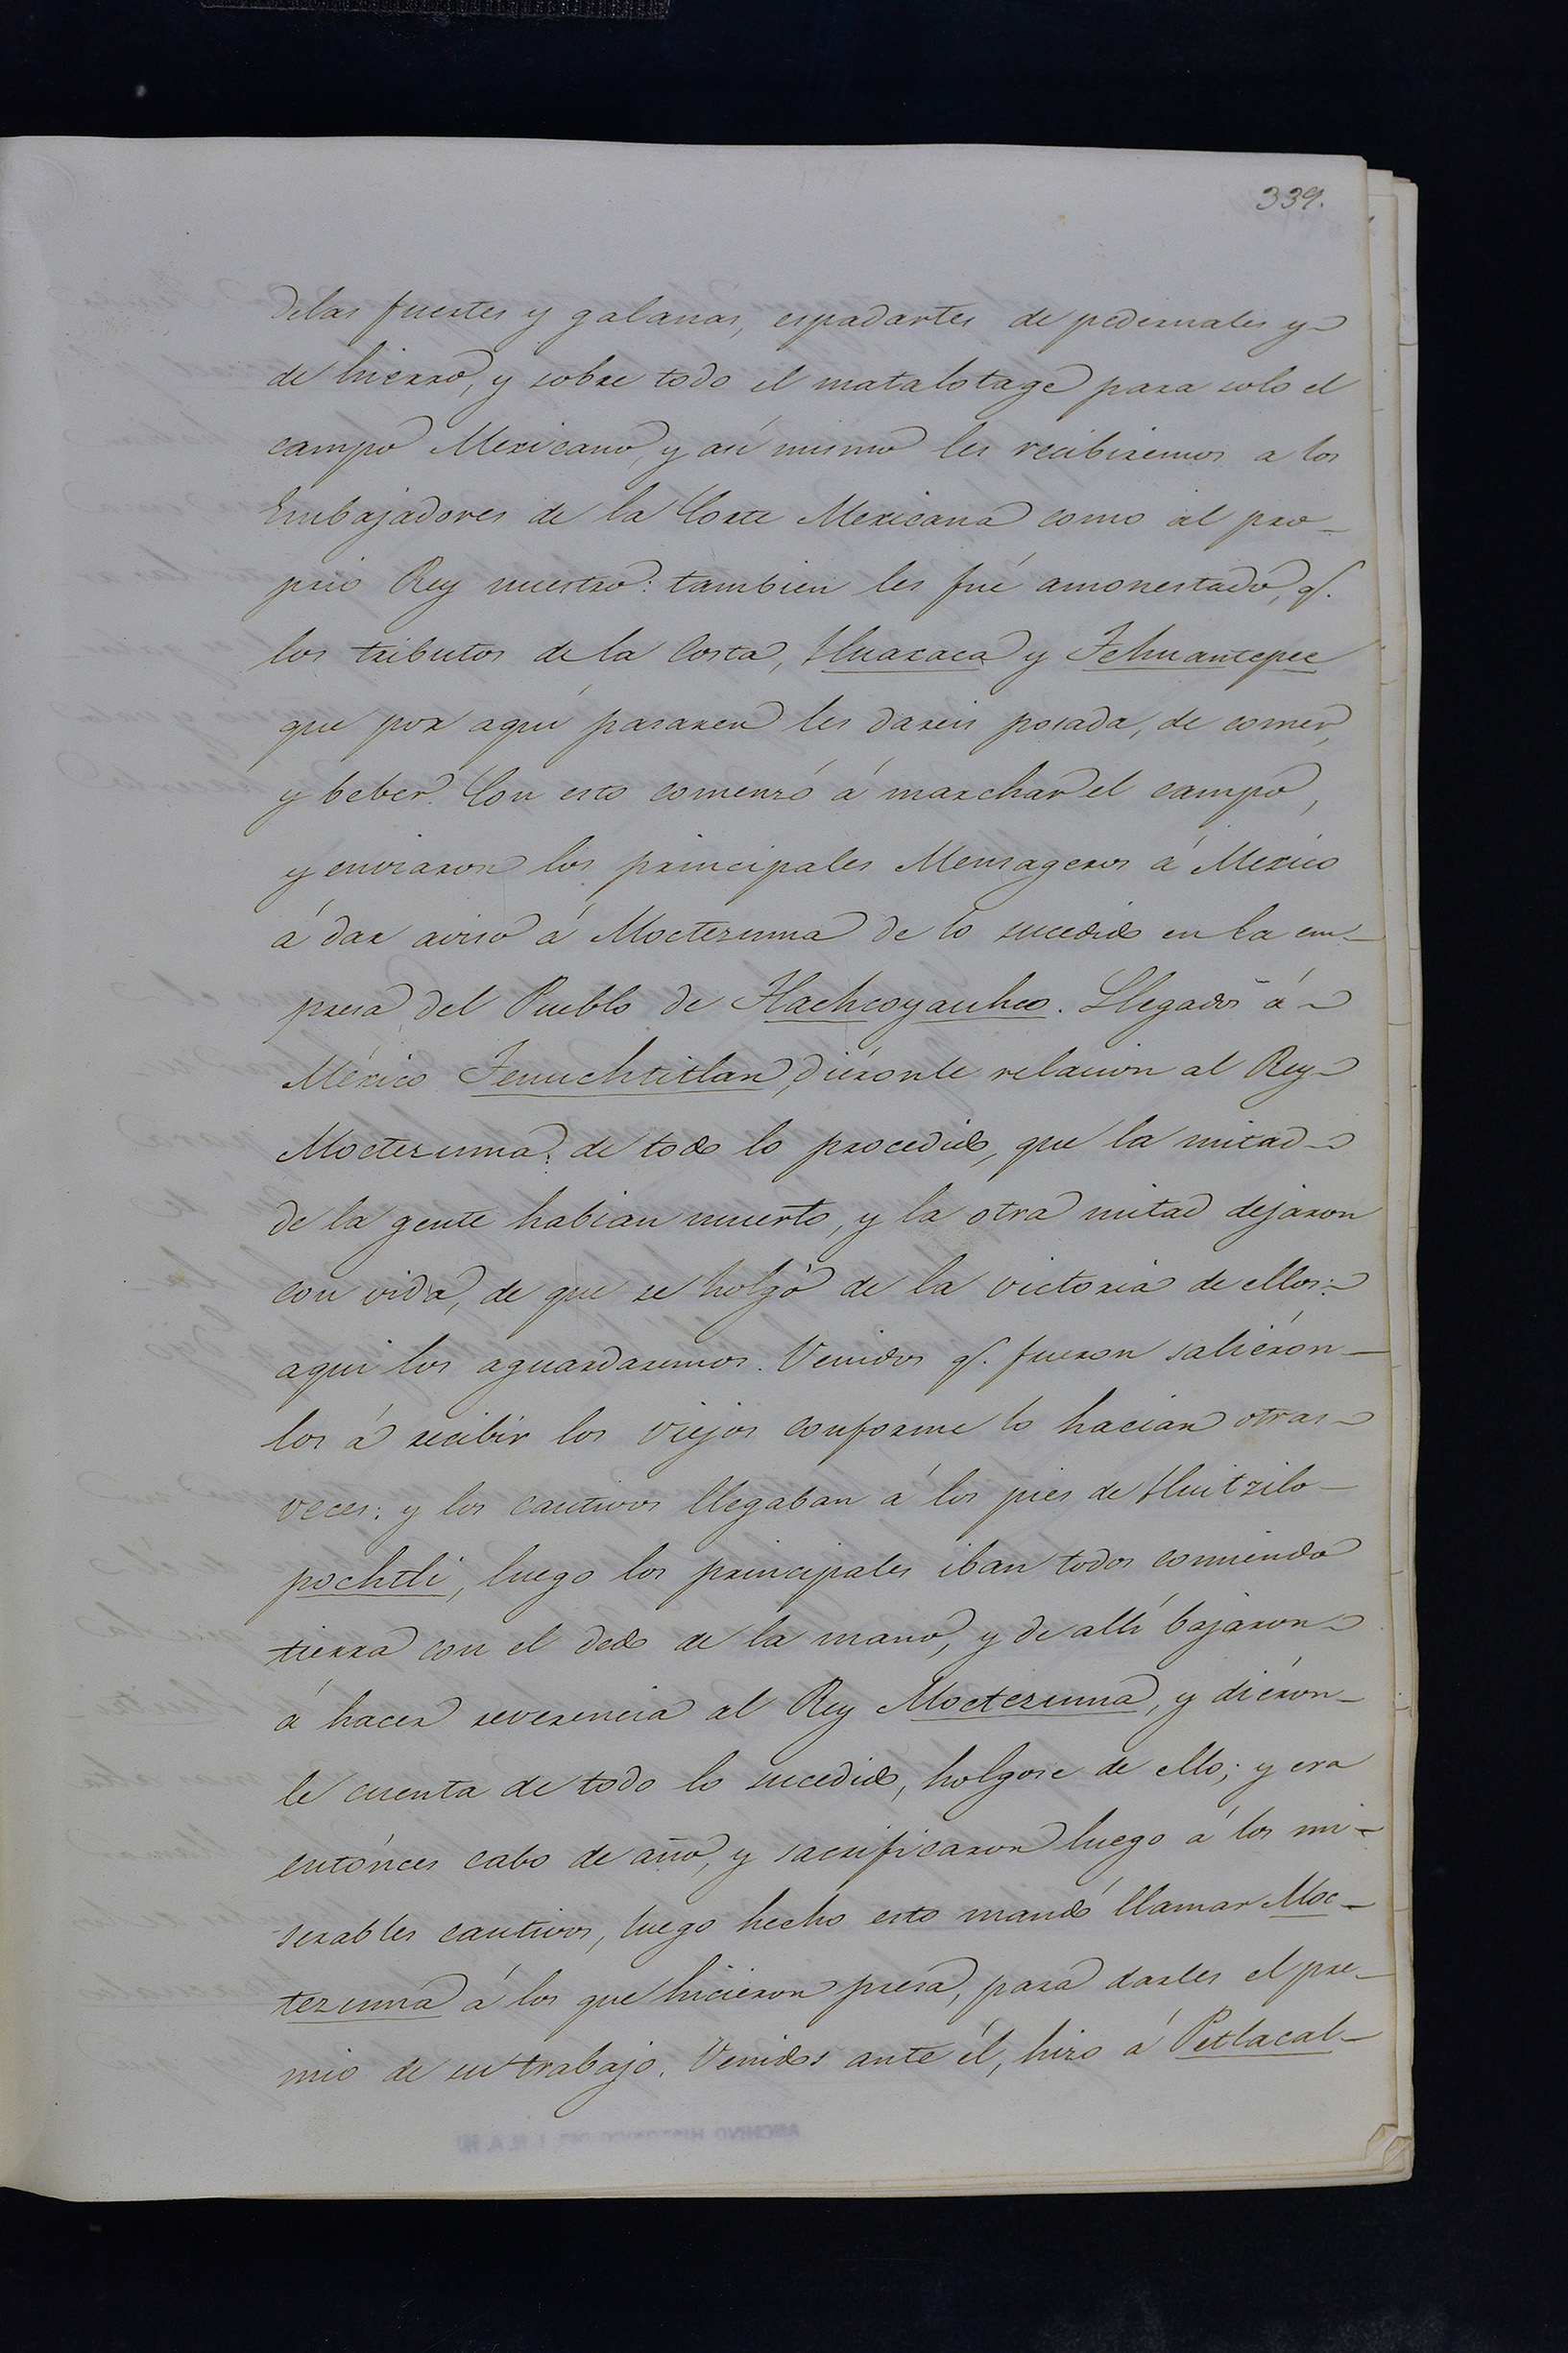 339.
delas fuertes y galanas, espadartes de pedernales y
de hierro, y sobre todo el matalotage para solo el
campo Mexicano, y asi mismo les recibiremos a los
Embajadores de la Corte Mexicana como al pro-
prio Rey nuestro: tambien les fué amonestado, q.
los tributos de la Costa, Huaxaca y Tehuantepec
que por aquí pasaren les dareis posada, de comer,
y beber. Con esto comenzó á marchar el campo,
y enviaron los principales Mensageros á Mexico
á dar aviso á Moctezuma de lo sucedido en la em-
presa del Pueblo de Tlachcoyauhco. Llegados á
México Tenuchtitlan, diéronle relacion al Rey
Moctezuma: de todo lo procedido, que la mitad
de la gente habian muerto, y la otra mitad dejaron
con vida, de que se holgó de la victoria de ellos:
aqui los aguardaremos. Venidos q. fueron saliéron-
los á recibir los viejos conforme lo hacian otras
veces: y los cautivos llegaban á los pies de Huitzilo-
pochtli, luego los principales iban todos comiendo
tierra con el dedo de la mano, y de alli bajaron
á hacer reverencia al Rey Moctezuma, y diéron-
le cuenta de todo lo sucedido, holgose de ello; y era
entónces cabo de año, y sacrificaron luego á los mi-
serables cautivos, luego hecho esto mandó llamar Moc-
tezuma á los que hicieron presa, para darles el pre-
mio de su trabajo. Venidos ante él, hizo á Petlacal-
ARCHIVO HISTORICO DEL I. N. A. H.